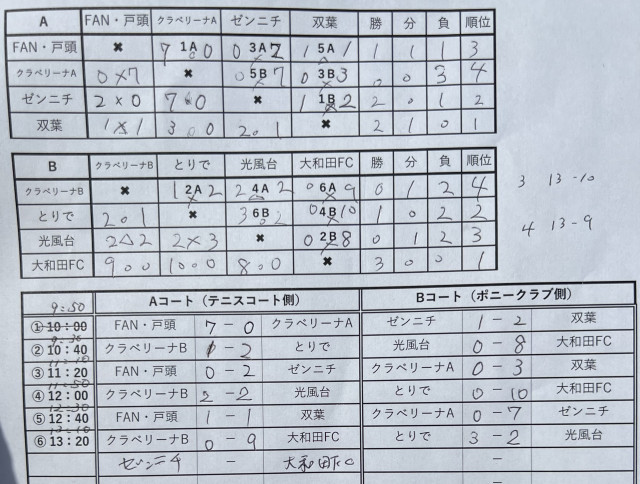 A FAN・戸頭 クラベリーナA ゼンニチ 双葉 勝 分 負 順位
FAN・戸頭 ✖ 7 1A 0 0 3A 2 1 5A 1 1 1 1 3
クラベリーナA 0 × 7 ✖ 0 5B 7 0 3B 3 0 0 3 4
ゼンニチ 2 × 0 7 0 0 ✖ 1 1B 2 2 0 1 2
双葉 1 × 1 3 0 0 2 0 1 ✖ 2 1 0 1
B クラベリーナB とりで 光風台 大和田FC 勝 分 負 順位
クラベリーナB ✖ 1 2A 2 2 4A 2 0 6A 9 0 1 2 4 3 13-10
とりで 2 0 1 ✖ 3 6B 2 0 4B 10 1 0 2 2 4 13-9
光風台 2 △ 2 2 × 3 ✖ 0 2B 8 0 1 2 3
大和田FC 9 0 0 10 0 0 8 0 0 ✖ 3 0 0 1
Aコート（テニスコート側） Bコート（ポニークラブ側）
9:50
①10：00 FAN・戸頭 7 － 0 クラベリーナA ゼンニチ 1 － 2 双葉
②10：40 クラベリーナB 1 － 2 とりで 光風台 0 － 8 大和田FC
③11：20 FAN・戸頭 0 － 2 ゼンニチ クラベリーナA 0 － 3 双葉
④12：00 クラベリーナB 2 － 2 光風台 とりで 0 － 10 大和田FC
⑤12：40 FAN・戸頭 1 － 1 双葉 クラベリーナA 0 － 7 ゼンニチ
⑥13：20 クラベリーナB 0 － 9 大和田FC とりで 3 － 2 光風台
ゼンニチ － 大和田FC －